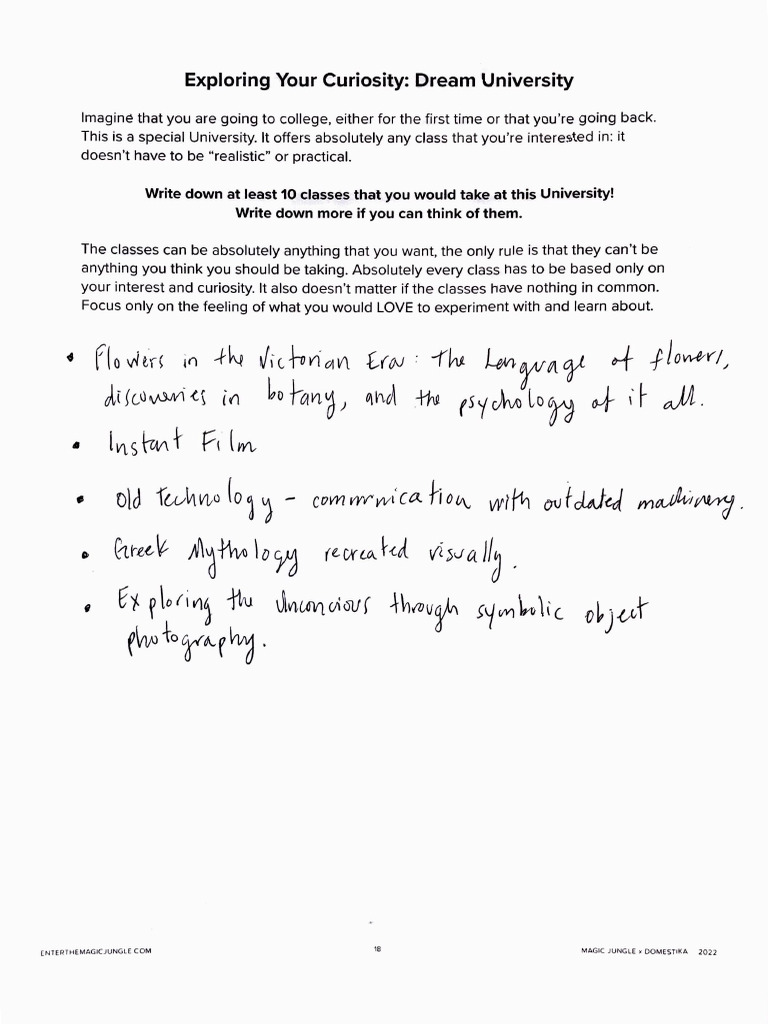 Exploring Your Curiosity: Dream University
Imagine that you are going to college, either for the first time or that you're going back.
This is a special University. It offers absolutely any class that you're interested in: it
doesn't have to be "realistic" or practical.
Write down at least 10 classes that you would take at this University!
Write down more if you can think of them.
The classes can be absolutely anything that you want, the only rule is that they can't be
anything you think you should be taking. Absolutely every class has to be based only on
your interest and curiosity. It also doesn't matter if the classes have nothing in common.
Focus only on the feeling of what you would LOVE to experiment with and learn about.
• Flowers in the Victorian Era: the Language of flowers,
discoveries in botany, and the psychology of it all.
• Instant Film
• Old technology - communication with outdated machinery.
• Greek Mythology recreated visually.
• Exploring the Unconcious through symbolic object
photography.
ENTERTHEMAGICJUNGLE.COM
18
MAGIC JUNGLE x DOMESTIKA 2022